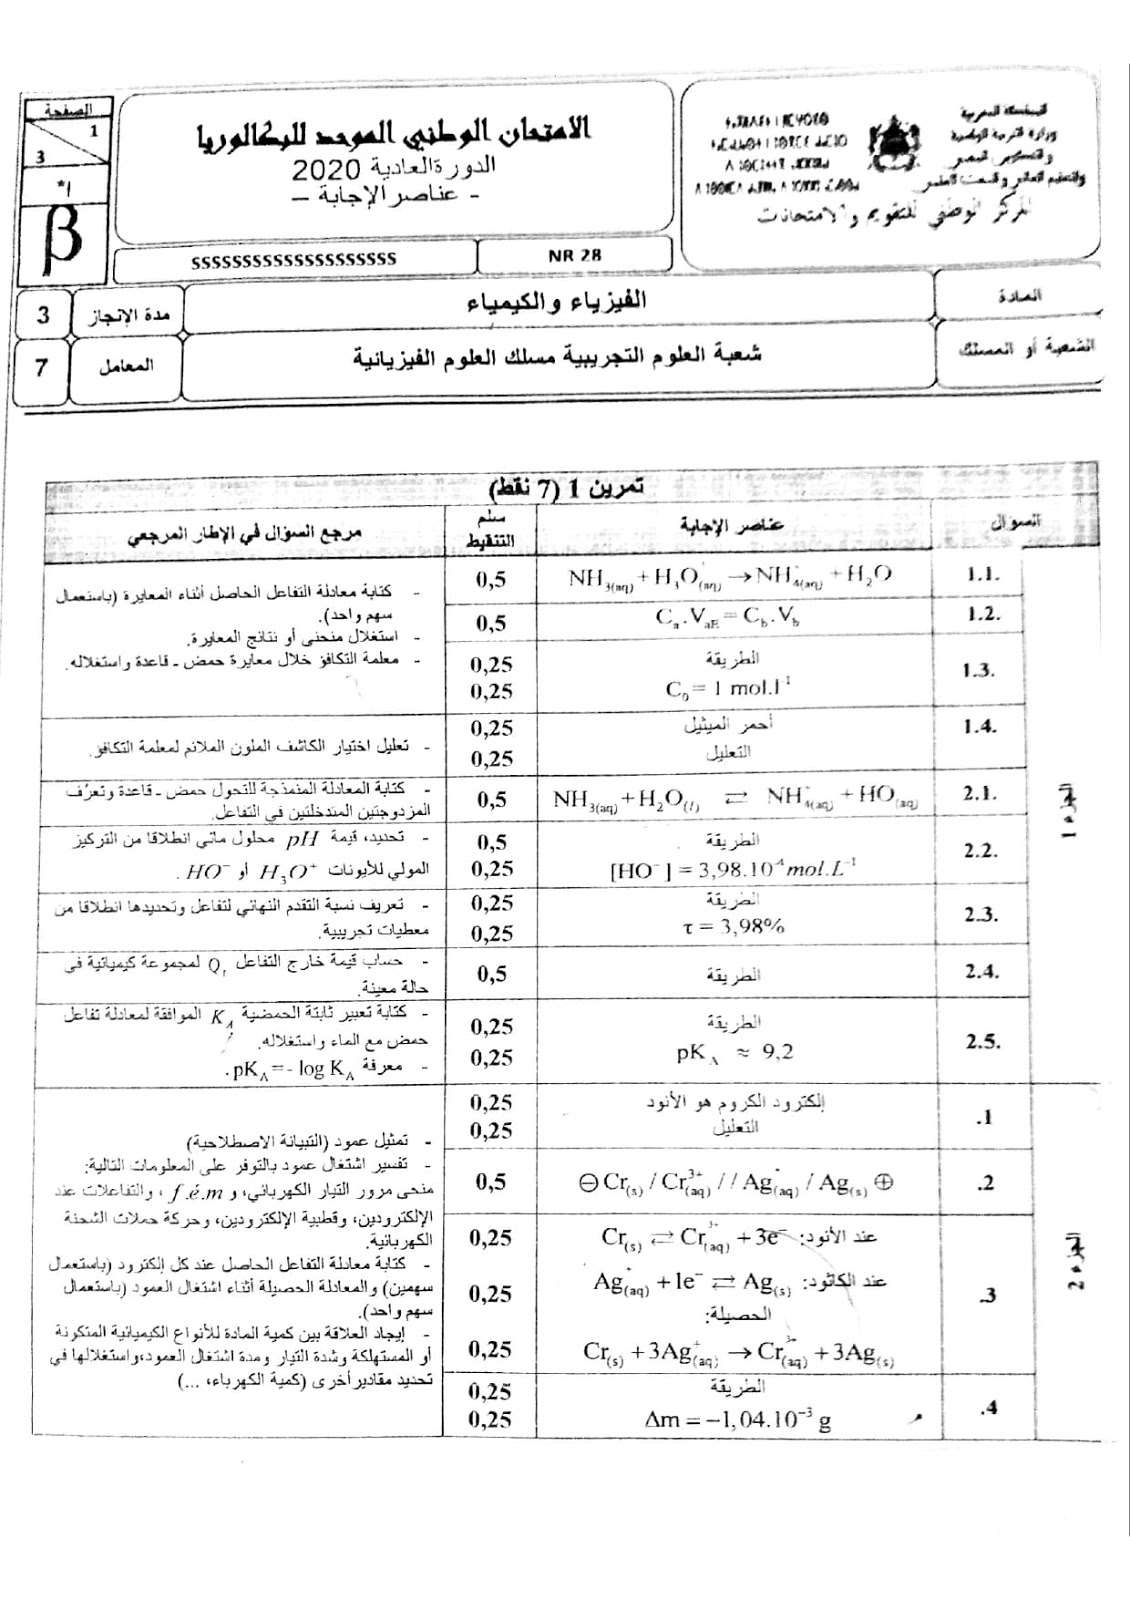 المملكة المغربية
وزارة التربية الوطنية
المركز الوطني للتقويم والامتحانات
الامتحان الوطني الموحد للبكالوريا
الدورة العادية 2020
- عناصر الإجابة -
الصفحة
1
3
*ا
β
SSSSSSSSSSSSSSSSSSSS
NR 28
المادة
الفيزياء والكيمياء
مدة الإنجاز
3
الشعبة أو المسلك
شعبة العلوم التجريبية مسلك العلوم الفيزيائية
المعامل
7
تمرين 1 (7 نقط)
السؤال
عناصر الإجابة
سلم
التنقيط
مرجع السؤال في الإطار المرجعي
الجزء 1
1.1.
NH3(aq) + H3O+(aq) → NH4+(aq) + H2O
0,5
1.2.
Ca.VaE = Cb.Vb
0,5
1.3.
الطريقة
0,25
C0 = 1 mol.l-1
0,25
- كتابة معادلة التفاعل الحاصل أثناء المعايرة (باستعمال
سهم واحد).
- استغلال منحنى أو نتائج المعايرة.
- معلمة التكافؤ خلال معايرة حمض - قاعدة واستغلاله.
1.4.
أحمر الميثيل
0,25
التعليل
0,25
- تعليل اختيار الكاشف الملون الملائم لمعلمة التكافؤ.
2.1.
NH3(aq) + H2O(l) ⇄ NH4+(aq) + HO-(aq)
0,5
- كتابة المعادلة المنمذجة للتحول حمض - قاعدة وتعرف
المزدوجتين المتدخلتين في التفاعل.
2.2.
الطريقة
0,5
[HO-] = 3,98.10-4 mol.L-1
0,25
- تحديد، قيمة pH محلول مائي انطلاقا من التركيز
المولي للأيونات H3O+ أو HO-.
2.3.
الطريقة
0,25
τ = 3,98%
0,25
- تعريف نسبة التقدم النهائي لتفاعل وتحديدها انطلاقا من
معطيات تجريبية.
2.4.
الطريقة
0,5
- حساب قيمة خارج التفاعل Qr لمجموعة كيميائية في
حالة معينة.
2.5.
الطريقة
0,25
pKA ≈ 9,2
0,25
- كتابة تعبير ثابتة الحمضية KA الموافقة لمعادلة تفاعل
حمض مع الماء واستغلاله.
- معرفة pKA = - log KA.
الجزء 2
1.
إلكترود الكروم هو الأنود
0,25
التعليل
0,25
2.
⊖ Cr(s) / Cr3+(aq) // Ag+(aq) / Ag(s) ⊕
0,5
3.
عند الأنود: Cr(s) ⇄ Cr3+(aq) + 3e-
0,25
عند الكاثود: Ag+(aq) + 1e- ⇄ Ag(s)
0,25
الحصيلة:
Cr(s) + 3Ag+(aq) → Cr3+(aq) + 3Ag(s)
0,25
4.
الطريقة
0,25
Δm = −1,04.10-3 g
0,25
- تمثيل عمود (التبيانة الاصطلاحية)
- تفسير اشتغال عمود بالتوفر على المعلومات التالية:
منحى مرور التيار الكهربائي، و f.é.m، والتفاعلات عند
الإلكترودين، وقطبية الإلكترودين، وحركة حملات الشحنة
الكهربائية.
- كتابة معادلة التفاعل الحاصل عند كل إلكترود (باستعمال
سهمين) والمعادلة الحصيلة أثناء اشتغال العمود (باستعمال
سهم واحد).
- إيجاد العلاقة بين كمية المادة للأنواع الكيميائية المتكونة
أو المستهلكة وشدة التيار ومدة اشتغال العمود،واستغلالها في
تحديد مقادير أخرى (كمية الكهرباء، ...)